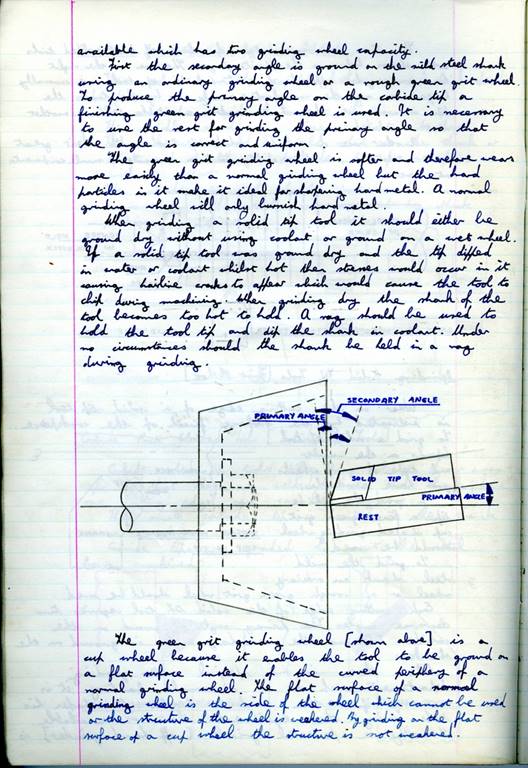 available which has two grinding wheel capacity.
First the secondary angle is ground on the mild steel shank
using an ordinary grinding wheel or a rough green grit wheel.
To produce the primary angle on the carbide tip a
finishing green grit grinding wheel is used. It is necessary
to use the rest for grinding the primary angle so that
the angle is correct and uniform.
The green grit grinding wheel is softer and therefore wears
more easily than a normal grinding wheel but the hard
particles in it make it ideal for sharpening hard metal. A normal
grinding wheel will only burnish hard metal.
When grinding a solid tip tool it should either be
ground dry without using coolant or ground on a wet wheel.
If a solid tip tool was ground dry and the tip dipped
in water or coolant whilst hot then stresses would occur in it
causing hairline cracks to appear which would cause the tool to
chip during machining. When grinding dry the shank of the
tool becomes too hot to hold. A rag should be used to
hold the tool tip and dip the shank in coolant. Under
no circumstances should the shank be held in a rag
during grinding.
SECONDARY ANGLE
PRIMARY ANGLE
SOLID TIP TOOL
PRIMARY ANGLE
REST
The green grit grinding wheel [shown above] is a
cup wheel because it enables the tool to be ground on
a flat surface instead of the curved periphery of a
normal grinding wheel. The flat surface of a normal
grinding wheel is the side of the wheel which cannot be used
or the structure of the wheel is weakened. By grinding on the flat
surface of a cup wheel the structure is not weakened.